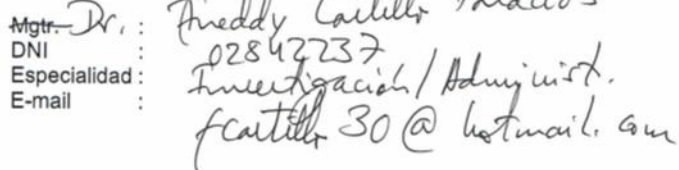 Mgtr. Dr. : Freddy Castillo Palacios
DNI : 02842237
Especialidad : Investigación / Administ.
E-mail : fcastillo30@hotmail.com